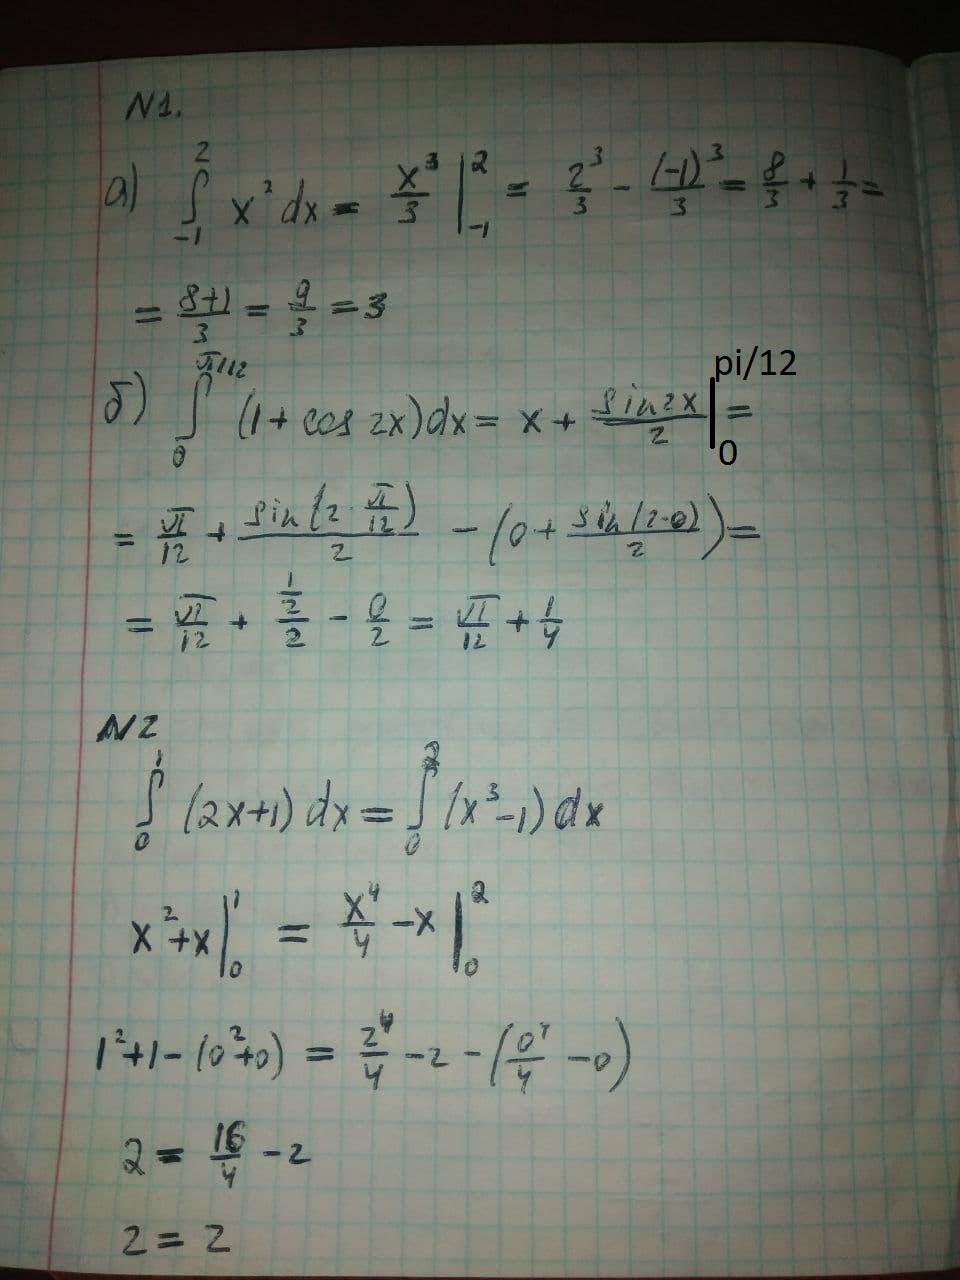 N1.
а) ∫₋₁² x² dx = x³/3 |₋₁² = 2³/3 - (-1)³/3 = 8/3 + 1/3 =
= (8+1)/3 = 9/3 = 3
б) ∫₀^(π/12) (1 + cos 2x) dx = x + sin 2x/2 |₀^(pi/12) =
= π/12 + sin(2 · π/12)/2 - (0 + sin(2·0)/2) =
= π/12 + (1/2)/2 - 0/2 = π/12 + 1/4
N2
∫₀¹ (2x+1) dx = ∫₀² (x³-1) dx
x²+x |₀¹ = x⁴/4 - x |₀²
1²+1 - (0²+0) = 2⁴/4 - 2 - (0⁴/4 - 0)
2 = 16/4 - 2
2 = 2